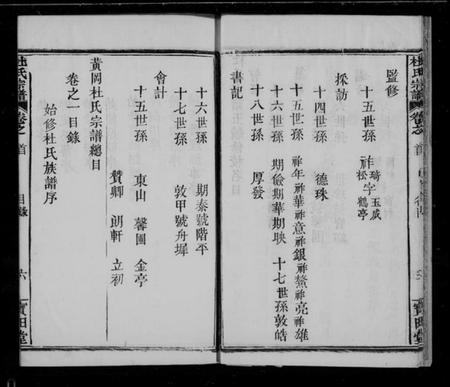 杜氏宗譜 卷之首
寶田堂
監修
十五世孫 祚琦字玉成 祚松鶴亭
採訪
十四世孫 德珠
十五世孫 祚年祚華祚意祚銀祚鰲祚亮祚雄
十六世孫 期儉期華期映 十七世孫敦皓
十八世孫 厚發
書記
十六世孫 期泰號階平
十七世孫 敦甲號舟墀
會計
十五世孫 東山 馨圃 金亭
贊卿 朗軒 立初
黃岡杜氏宗譜總目
卷之一目錄
始修杜氏族譜序
杜氏宗譜 卷之首 目錄 六
寶田堂